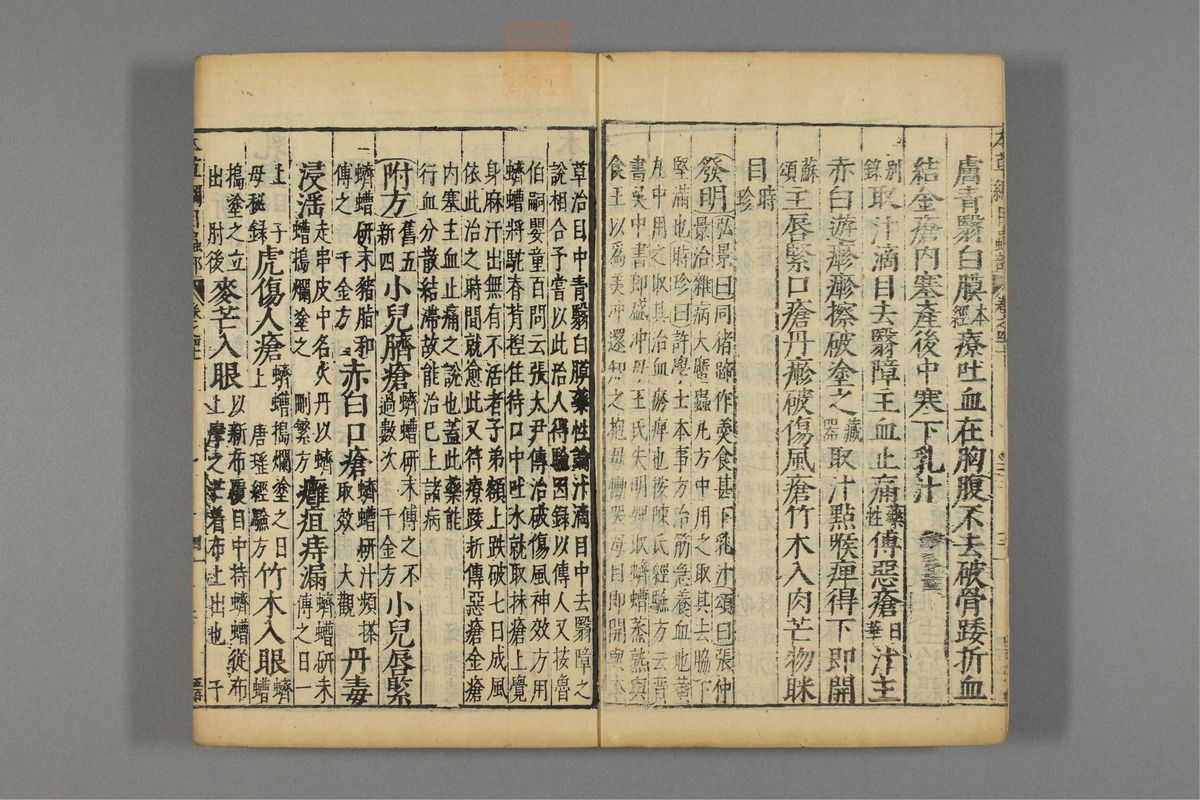 膚青翳白膜本經療吐血在胸腹不去破骨踒折血
結金瘡内塞產後中寒下乳汁
別錄取汁滴目去翳障主血止痛藥性傅惡瘡日華汁主
赤白遊瘮瘮擦破塗之藏器取汁點喉痺得下即開
蘇頌主唇緊口瘡丹瘮破傷風瘡竹木入肉芒物眯
目時珍
發明弘景曰同猪蹄作羮食甚下乳汁頌曰張仲
景治雜病大䗪蟲丸方中用之取其去脇下
堅滿也時珍曰許學士本事方治筋急養血地黃
丸中用之取其治血瘀痺也按陳氏經驗方云晋
書吳中書郎盛冲母王氏失明婢取蠐螬蒸熟與
食王以爲美冲還知之抱母慟哭母目即開與本
草治目中青翳白膜藥性論汁滴目中去翳障之
說相合予嘗以此治人得驗因錄以傳人又按魯
伯嗣嬰童百問云張太尹傳治破傷風神效方用
蠐螬將駝脊背捏住待口中吐水就取抹瘡上覺
身麻汗出無有不活者子弟額上跌破七日成風
依此治之時間就愈此又符療踒折傅惡瘡金瘡
内塞主血止痛之說也蓋此藥能
行血分散結滯故能治已上諸病
附方舊五新四小兒臍瘡蠐螬研末傅之不過數次千金方小兒唇緊
蠐螬研末豬脂和傅之千金方赤白口瘡蠐螬研汁頻搽取效大觀丹毒
浸淫走串皮中名火丹以蠐螬搗爛塗之刪繁方癰疽痔漏蠐螬研末傅之日一
上子母秘録虎傷人瘡蠐螬搗爛塗之日上唐瑤經驗方竹木入眼蠐螬
搗塗之立出肘後麥芒入眼以新布覆目中持蠐螬從布上摩之芒着布上出也千